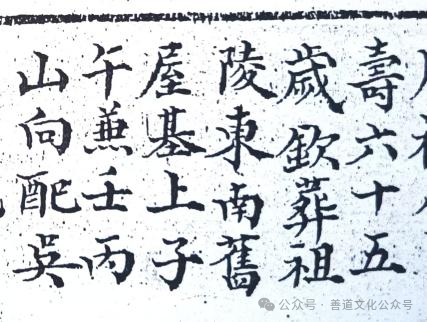 壽六十五
歲欽葬祖
陵東南舊
屋基上子
午兼壬丙
山向配吳
公众号 · 善道文化公众号